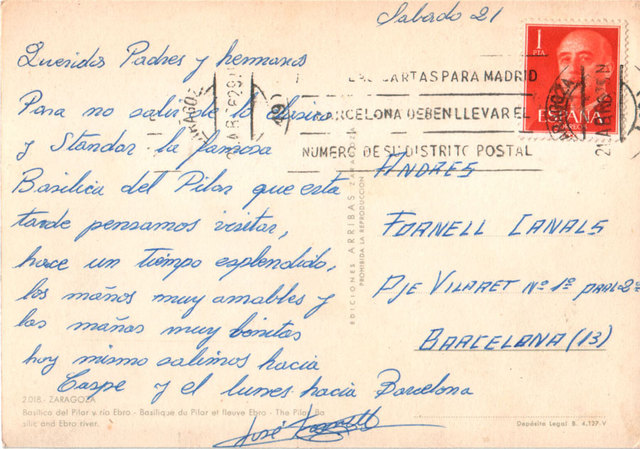 Sabado 21
Queridos Padres y hermanos
Para no salir de lo clasico
y Standar la famosa
Basilica del Pilar que esta
tarde pensamos visitar,
hace un tiempo esplendido,
los maños muy amables y
las mañas muy bonitas
hoy mismo salimos hacia
Caspe y el lunes hacia Barcelona
José
2.018.- ZARAGOZA
Basílica del Pilar y río Ebro - Basilique du Pilar et fleuve Ebro - The Pilar Ba
silic and Ebro river.
EDICIONES ARRIBAS ZARAGOZA
PROHIBIDA LA REPRODUCCION
1
PTA
ESPAÑA
CARTAS PARA MADRID
BARCELONA DEBEN LLEVAR EL
NUMERO DE SU DISTRITO POSTAL
ZARAGOZA
ANDRES
FORNELL CANALS
PJE VILARET Nº 1º PRAL-2ª
BARCELONA (13)
Depósito Legal B. 4.127-V